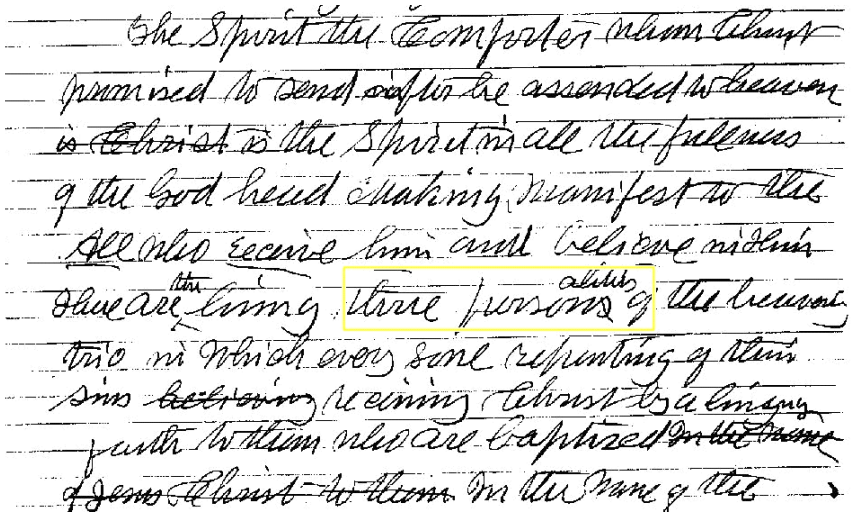 The Spirit the Comforter whom Christ
promised to send after he assended to heaven
is Christ is the Spirit in all the fulness
of the God head making manifest to the
All who receive him and believe in him
There are the living three personalities of the heavenly
trio in which every soul repenting of their
sins believing receiving Christ by a living
faith to them who are baptized in the name
of Jesus Christ to them In the name of the